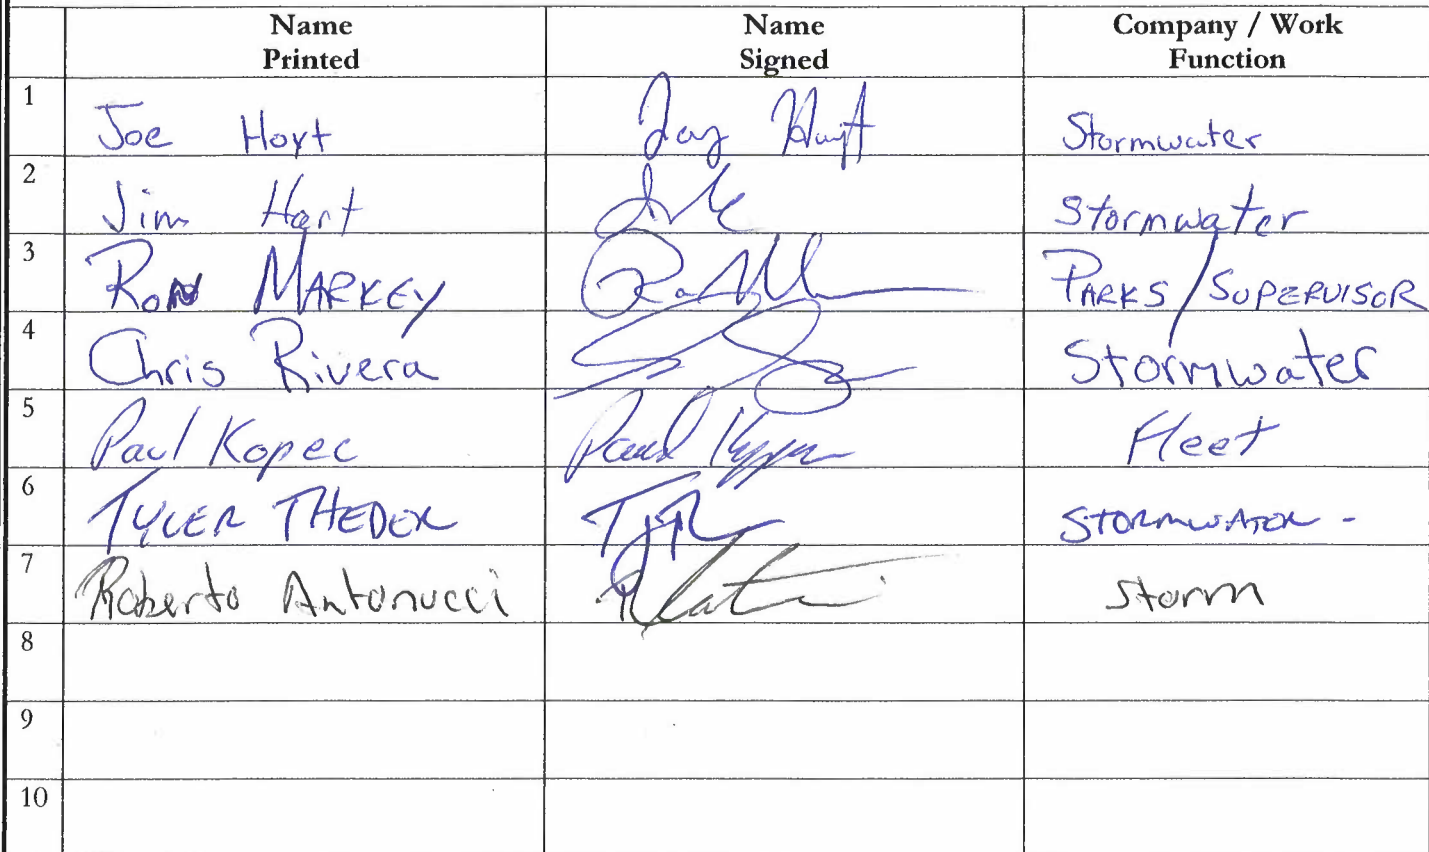 Name Printed Name Signed Company / Work Function
1 Joe Hoyt Stormwater
2 Jim Hart Stormwater
3 RON MARKEY PARKS / SUPERVISOR
4 Chris Rivera Stormwater
5 Paul Kopec Paul Fleet
6 TYLER THEDER STORMWATER -
7 Roberto Antonucci Storm
8
9
10